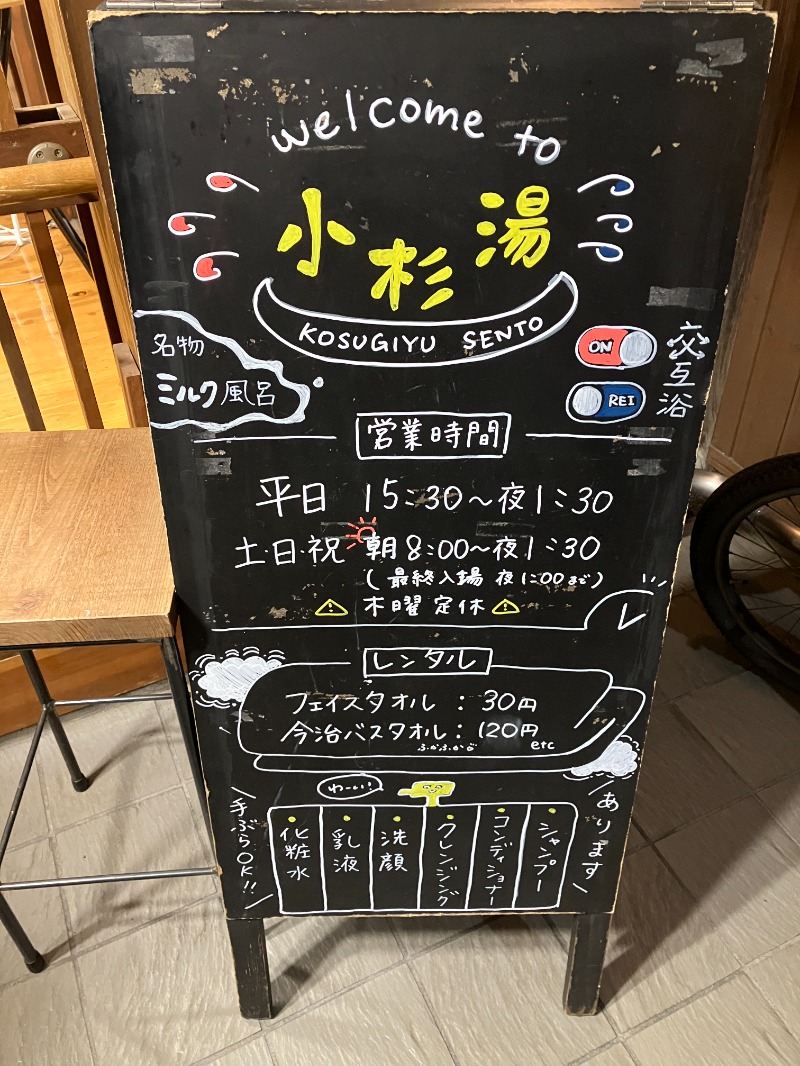 welcome to
小杉湯
KOSUGIYU SENTO
名物
ミルク風呂
ON
REI
交互浴
営業時間
平日 15:30～夜1:30
土・日・祝 朝8:00～夜1:30
(最終入場 夜1:00まで)
木曜 定休
レンタル
フェイスタオル : 30円
今治バスタオル : 120円
ふかふかだ etc
わーい!
手ぶらOK!!
化粧水
乳液
洗顔
クレンジング
コンディショナー
シャンプー
あります